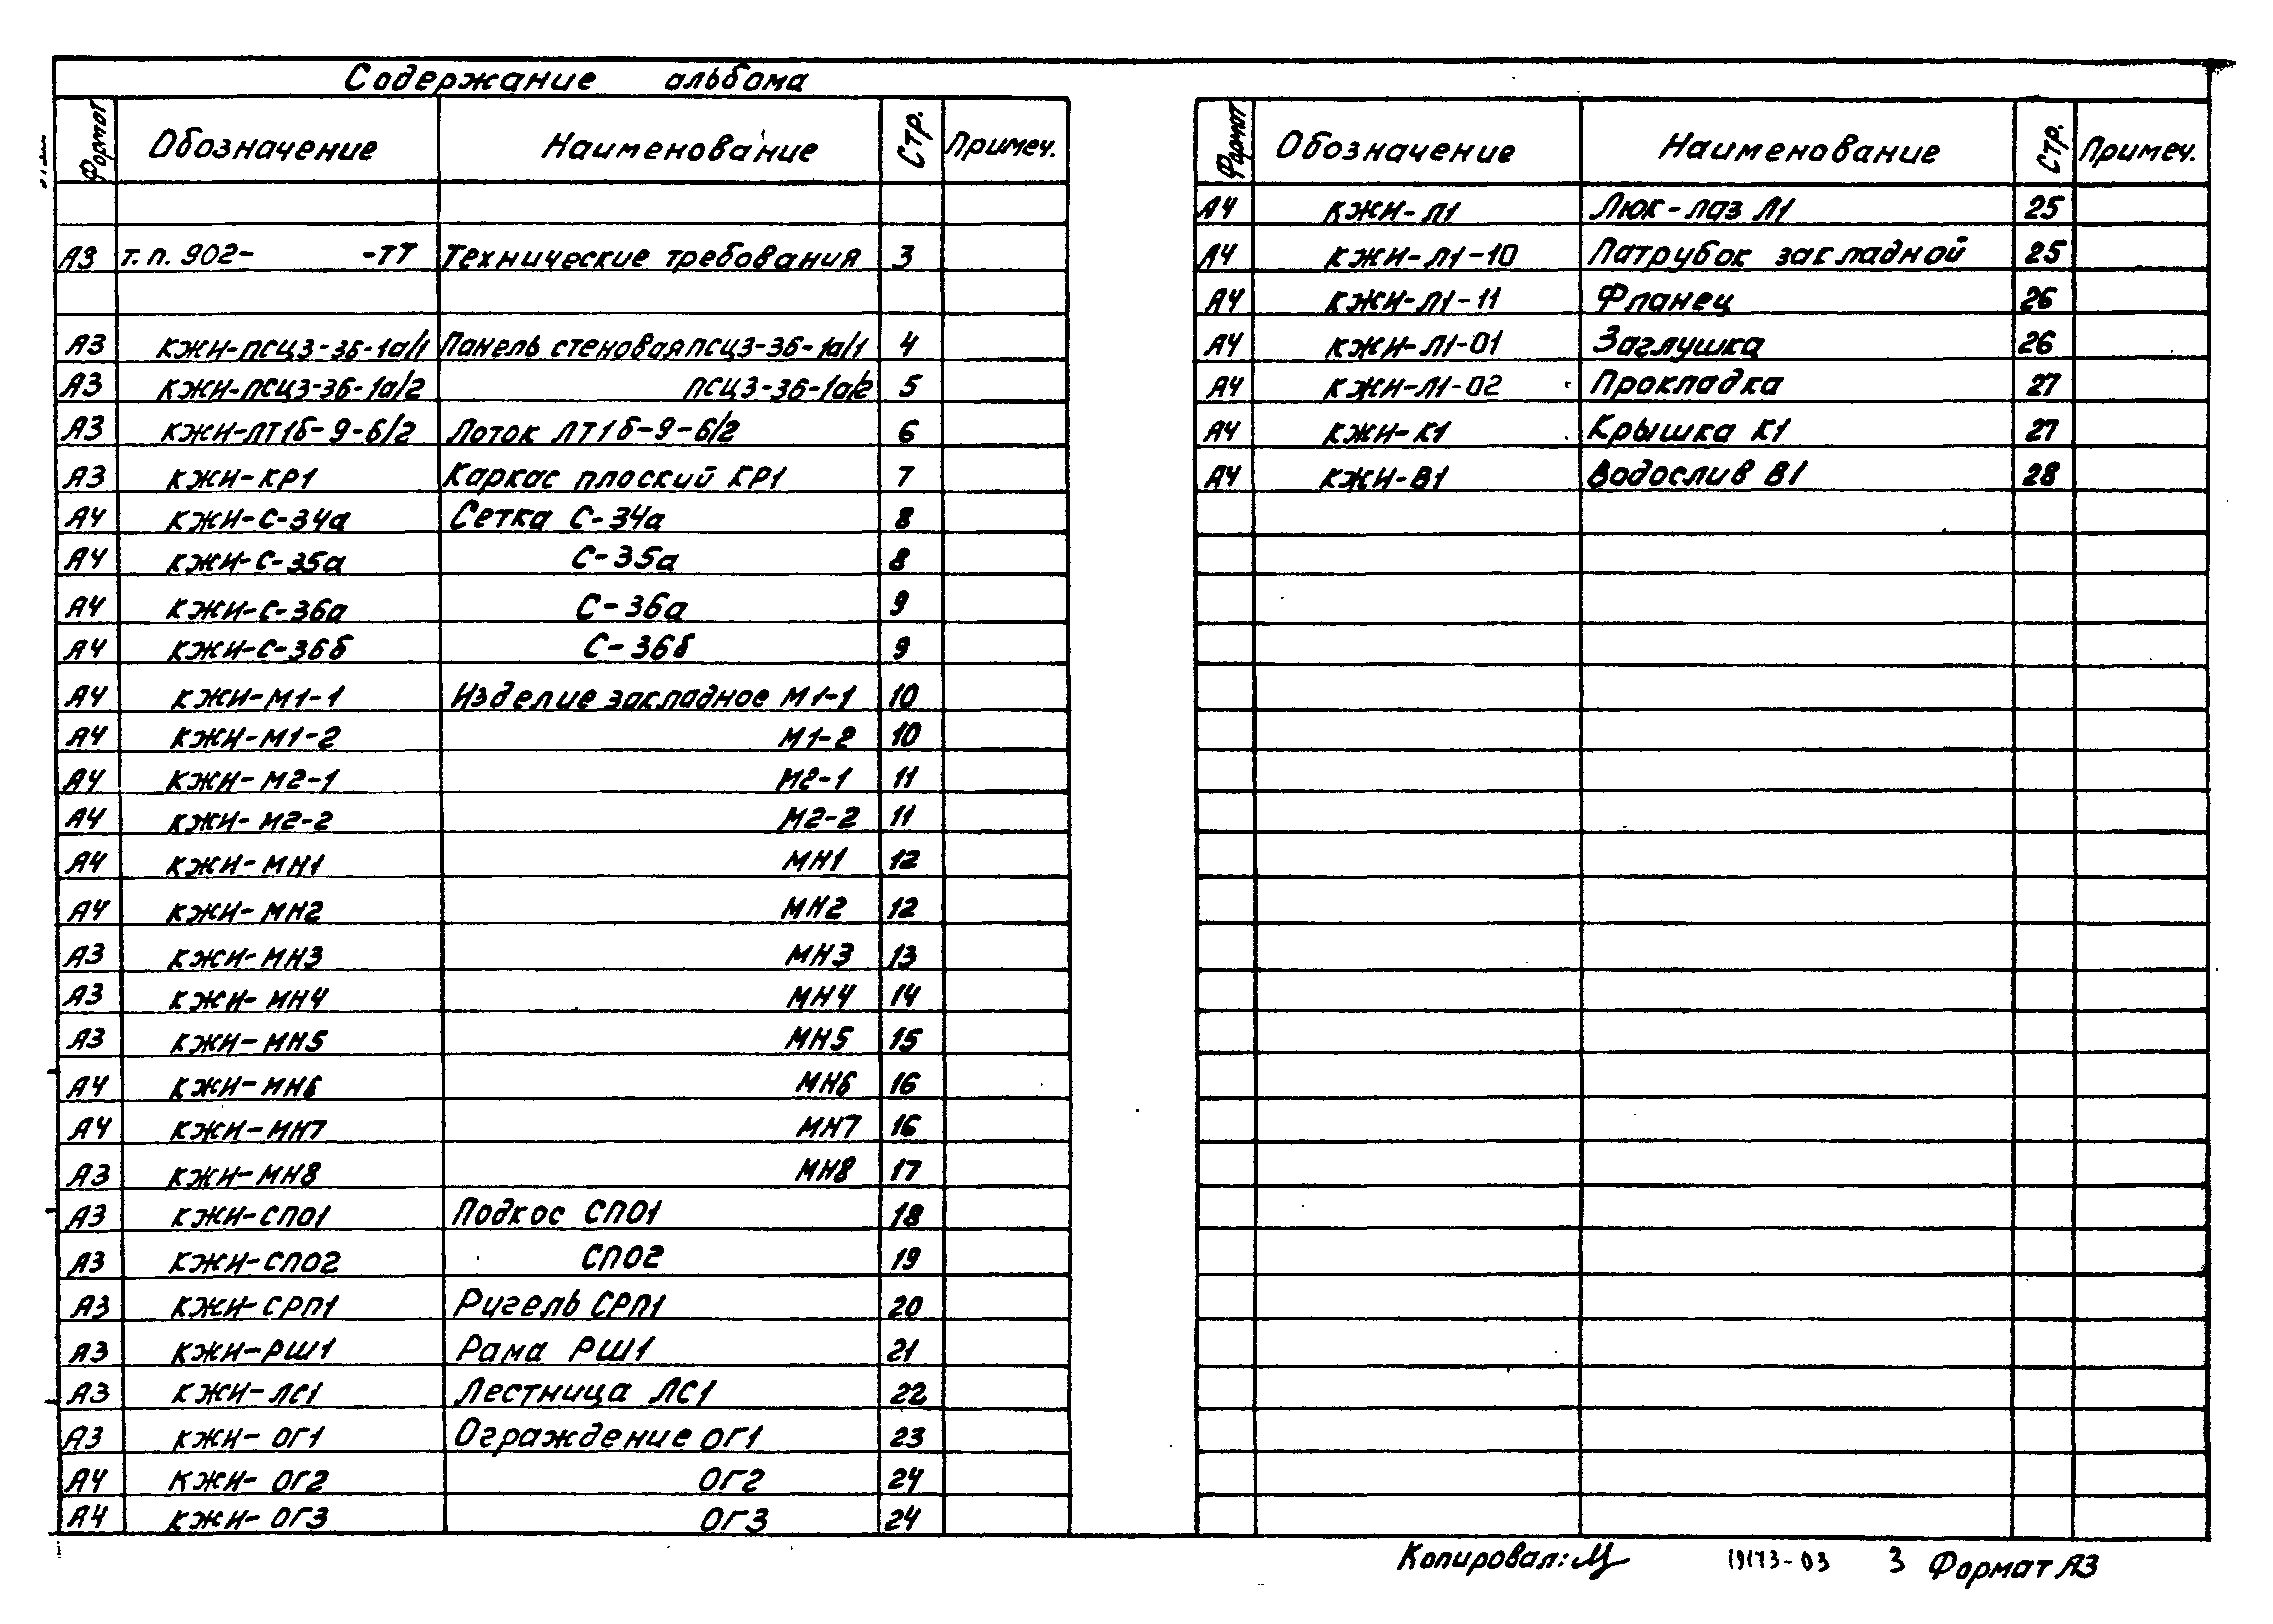 Содержание альбома
Формат Обозначение Наименование Стр. Примеч.
А3 т.п. 902- -ТТ Технические требования 3
А3 КЖИ-ПСЦ3-36-1а/1 Панель стеновая ПСЦ3-36-1а/1 4
А3 КЖИ-ПСЦ3-36-1а/2 ПСЦ3-36-1а/2 5
А3 КЖИ-ЛТ1б-9-6/2 Лоток ЛТ1б-9-6/2 6
А3 КЖИ-КР1 Каркас плоский КР1 7
А4 КЖИ-С-34а Сетка С-34а 8
А4 КЖИ-С-35а С-35а 8
А4 КЖИ-С-36а С-36а 9
А4 КЖИ-С-36б С-36б 9
А4 КЖИ-М1-1 Изделие закладное М1-1 10
А4 КЖИ-М1-2 М1-2 10
А4 КЖИ-М2-1 М2-1 11
А4 КЖИ-М2-2 М2-2 11
А4 КЖИ-МН1 МН1 12
А4 КЖИ-МН2 МН2 12
А3 КЖИ-МН3 МН3 13
А3 КЖИ-МН4 МН4 14
А3 КЖИ-МН5 МН5 15
А4 КЖИ-МН6 МН6 16
А4 КЖИ-МН7 МН7 16
А3 КЖИ-МН8 МН8 17
А3 КЖИ-СПО1 Подкос СПО1 18
А3 КЖИ-СПО2 СПО2 19
А3 КЖИ-СРП1 Ригель СРП1 20
А3 КЖИ-РШ1 Рама РШ1 21
А3 КЖИ-ЛС1 Лестница ЛС1 22
А3 КЖИ-ОГ1 Ограждение ОГ1 23
А4 КЖИ-ОГ2 ОГ2 24
А4 КЖИ-ОГ3 ОГ3 24
Формат Обозначение Наименование Стр. Примеч.
А4 КЖИ-Л1 Люк-лаз Л1 25
А4 КЖИ-Л1-10 Патрубок закладной 25
А4 КЖИ-Л1-11 Фланец 26
А4 КЖИ-Л1-01 Заглушка 26
А4 КЖИ-Л1-02 Прокладка 27
А4 КЖИ-К1 Крышка К1 27
А4 КЖИ-В1 Водослив В1 28
Копировал: 19173-03 3 Формат А3